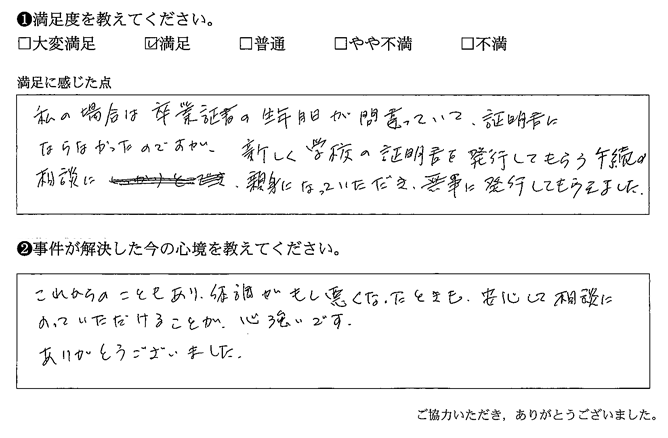 ❶満足度を教えてください。
□大変満足 ☑満足 □普通 □やや不満 □不満
満足に感じた点
私の場合は卒業証書の生年月日が間違っていて、証明書に
ならなかったのですが、新しく学校の証明書を発行してもらう手続の
相談に 、親身になっていただき、無事に発行してもらえました。
❷事件が解決した今の心境を教えてください。
これからのこともあり、体調がもし悪くなったときも、安心して相談に
のっていただけることが、心強いです。
ありがとうございました。
ご協力いただき，ありがとうございました。